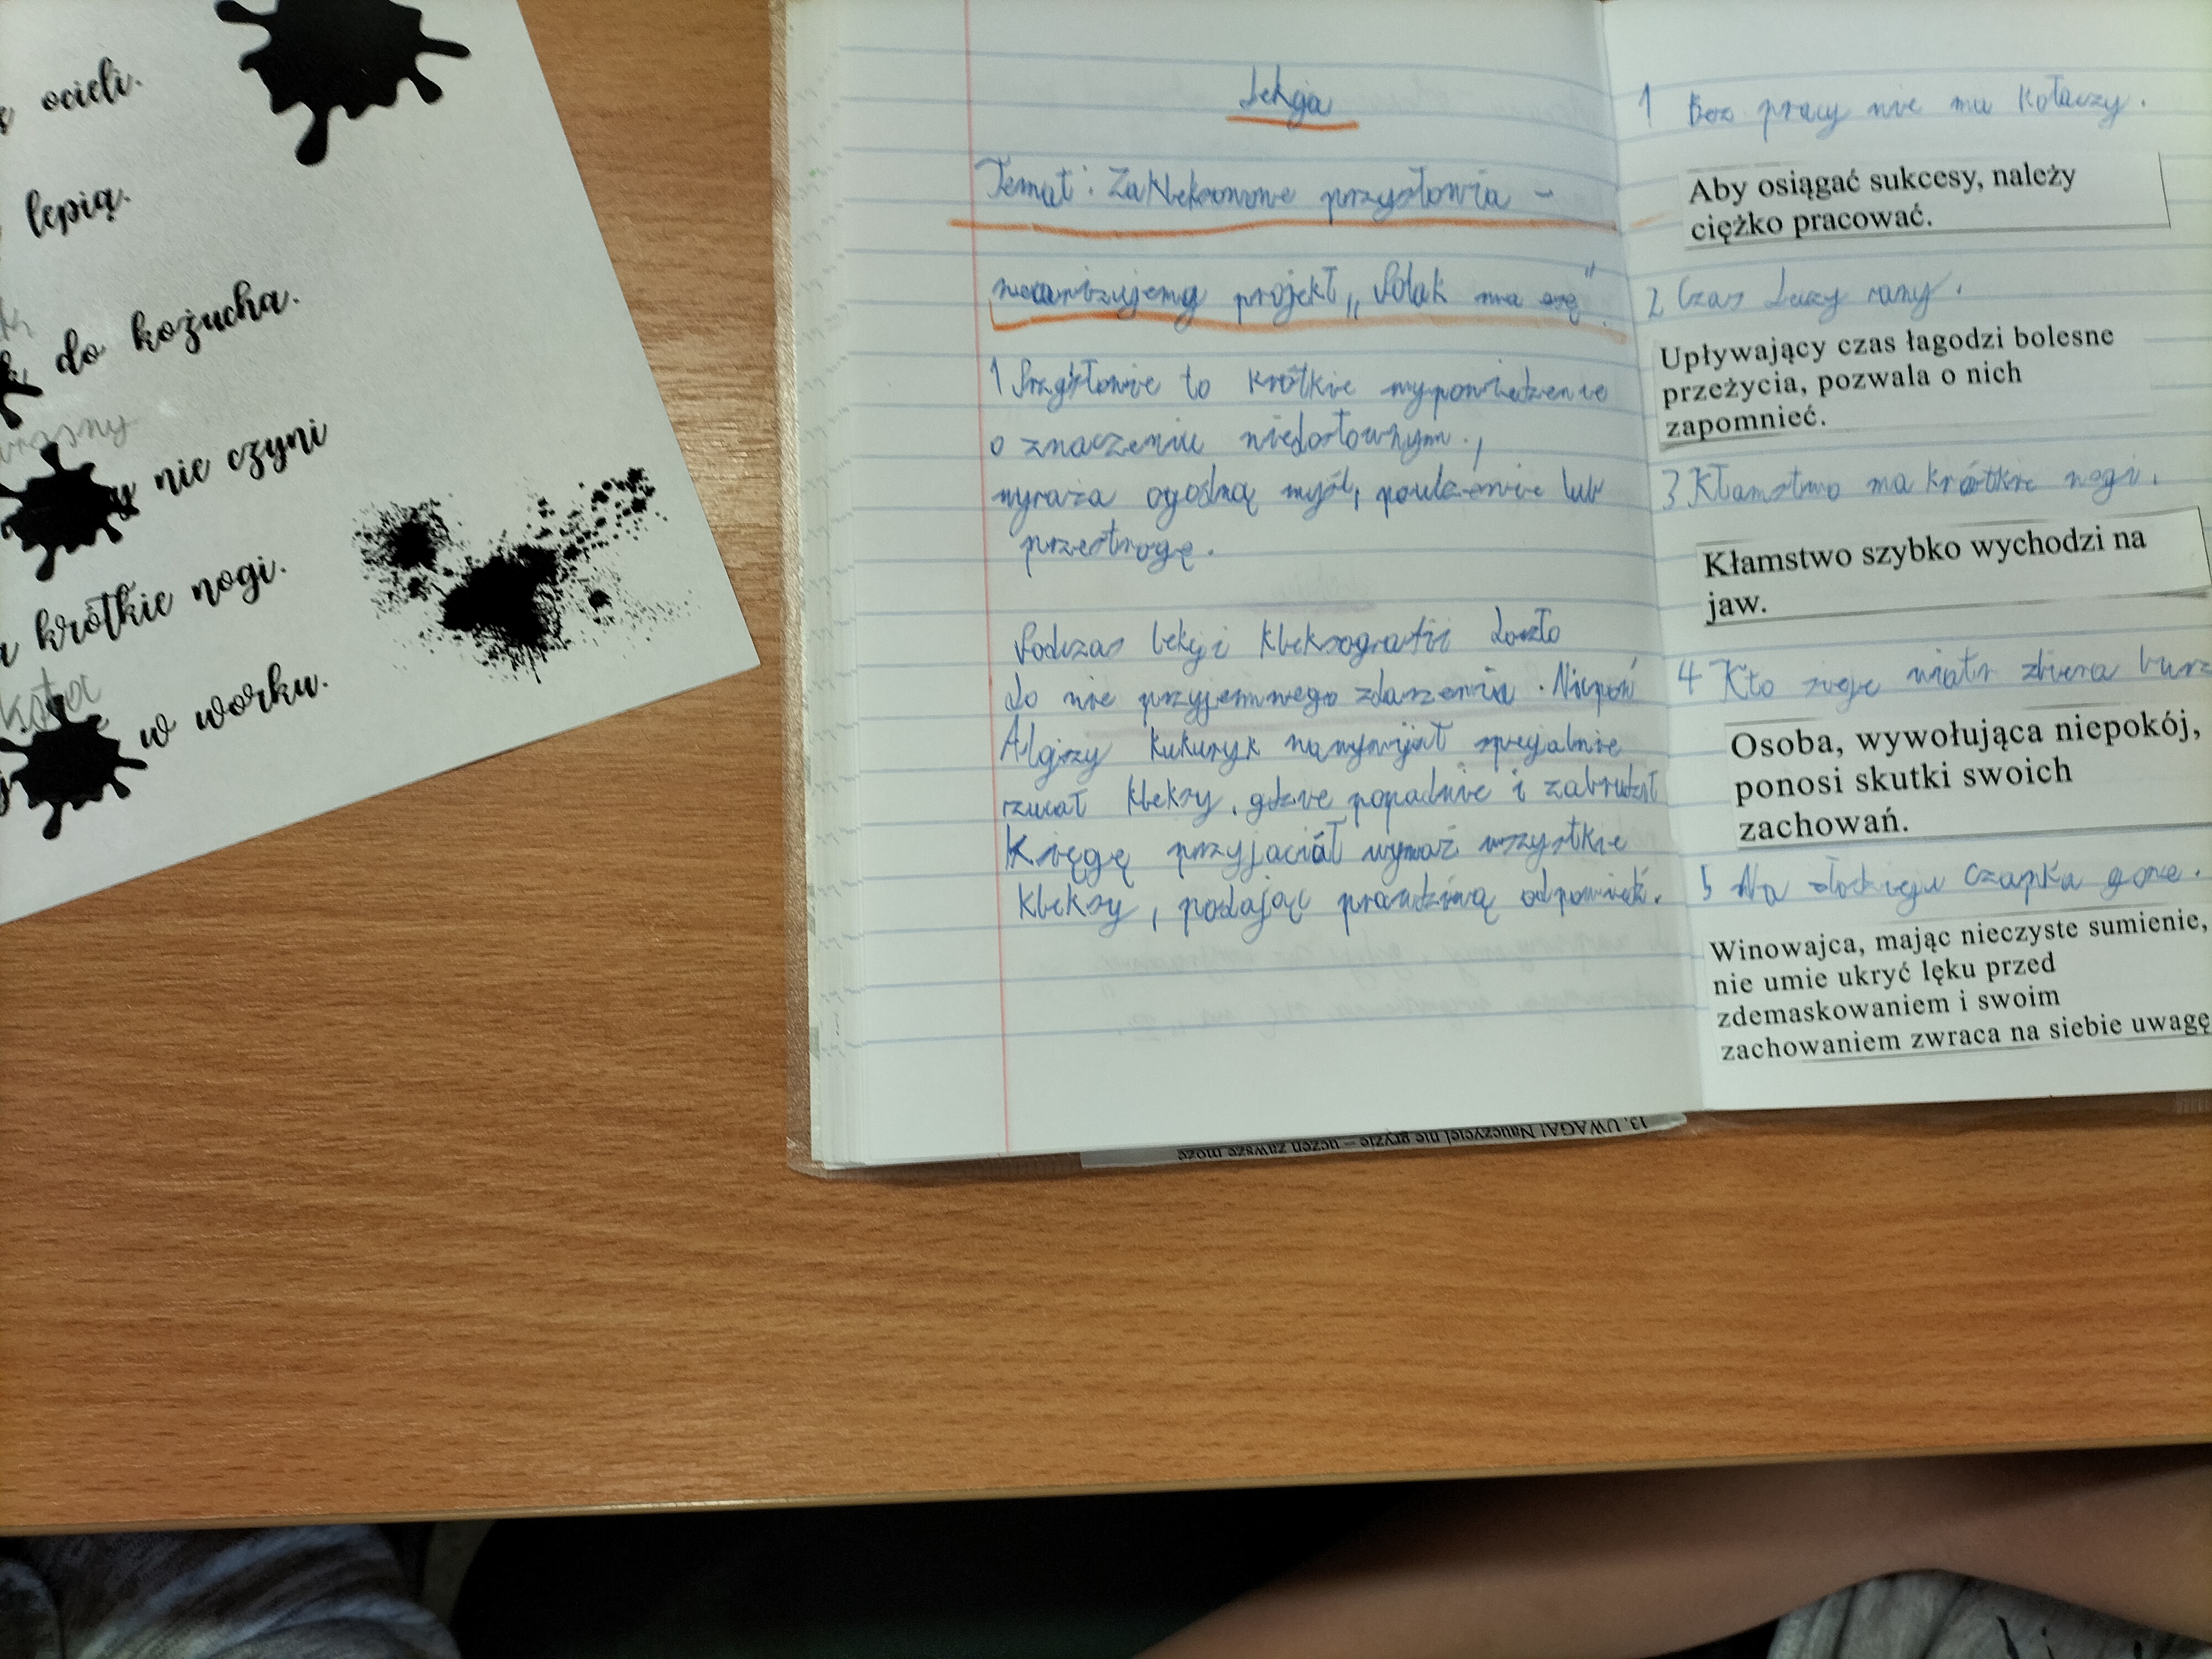 ocieli.
lepią.
do kożucha.
nie czyni
krótkie nogi.
w worku.
Lekcja
Temat: Zakleksowane przysłowia -
realizujemy projekt „Polak ma się"
1 Przysłowie to krótkie wypowiedzenie
o znaczeniu niedosłownym.,
wyraża ogólną myśl, pouczenie lub
przestrogę.
Podczas lekcji kleksografii doszło
do nie przyjemnego zdarzenia. Niepoń
Alojzy Kukuryk specjalnie
rzucał kleksy, gdzie popadnie i zabrudził
Księgę przyjaciół wymaż wszystkie
kleksy, podając prawdziwą odpowiedź.
13. UWAGA! Nauczyciel nie gryzie – uczeń zawsze może
1 Bez pracy nie ma kołaczy.
Aby osiągać sukcesy, należy
ciężko pracować.
2 Czas leczy rany.
Upływający czas łagodzi bolesne
przeżycia, pozwala o nich
zapomnieć.
3 Kłamstwo ma krótkie nogi.
Kłamstwo szybko wychodzi na
jaw.
4 Kto sieje wiatr zbiera burz
Osoba, wywołująca niepokój,
ponosi skutki swoich
zachowań.
5 Na złodzieju czapka gore.
Winowajca, mając nieczyste sumienie,
nie umie ukryć lęku przed
zdemaskowaniem i swoim
zachowaniem zwraca na siebie uwagę